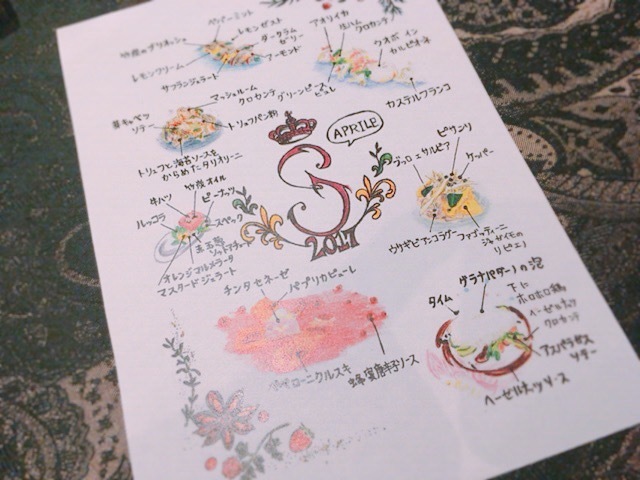 ペパーミント
レモンゼスト
ダークラム
ゼリー
アーモンド
レモンクリーム
サフランジェラート
アオリイカ
生ハム
クロカンテ
クオポ イン
カルピオーネ
グリーンピース
ピュレ
カステルフランコ
マッシュルーム
クロカンテ
芽キャベツ
ソテー
トリュフパン粉
トリュフと海苔ソースを
からめたタリオリーニ
APRILE
S
2017
牛ハツ
竹炭オイル
ピーナッツ
ルッコラ
スペック
オレンジマルメラータ
マスタードジェラート
ピサソリ
ブロェサルピア
ケッパー
ウサギビアンコラグー
ファゴッティーニ
ジャガイモの
リピエノ
チンタセネーゼ
パプリカピューレ
ペペローニクルスキ
蜂蜜唐辛子ソース
グラナパダーノの泡
タイム
下に
ホロホロ鶏
ヘーゼルナッツ
クロカンテ
アスパラガス
ソテー
ヘーゼルナッツソース